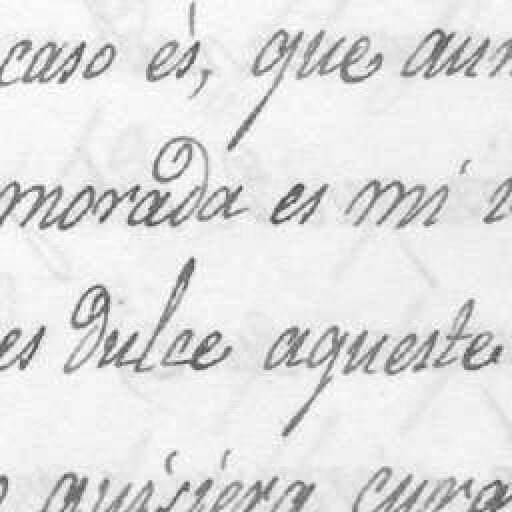 caso es, que aun
morada es mi
es dulce aqueste
quisiera cura